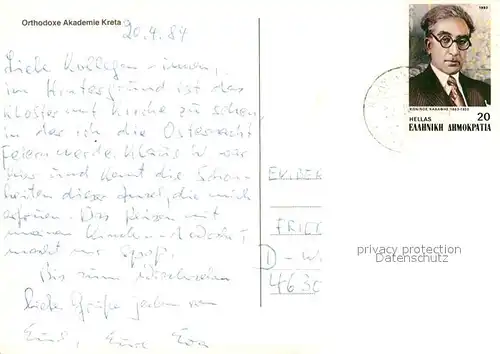 Orthodoxe Akademie Kreta
20.4.84
Liebe Kollegen-innen,
im Hintergrund ist das
Kloster mit Kirche zu sehen,
in der ich die Osternacht
feiern werde. Klaus W. war
hier und kennt die Schön-
heiten dieser Insel, die mich
erfreuen. Das Reisen mit
meinen
macht mir Spaß.
Bis zum Wiedersehen
liebe Grüße jedem von
Euch, Eure Eva
EV. DEK
FRIED
D - W
4630
1983
ΚΩΝ/ΝΟΣ ΚΑΒΑΦΗΣ 1863-1933
HELLAS 20
ΕΛΛΗΝΙΚΗ ΔΗΜΟΚΡΑΤΙΑ
privacy protection
Datenschutz